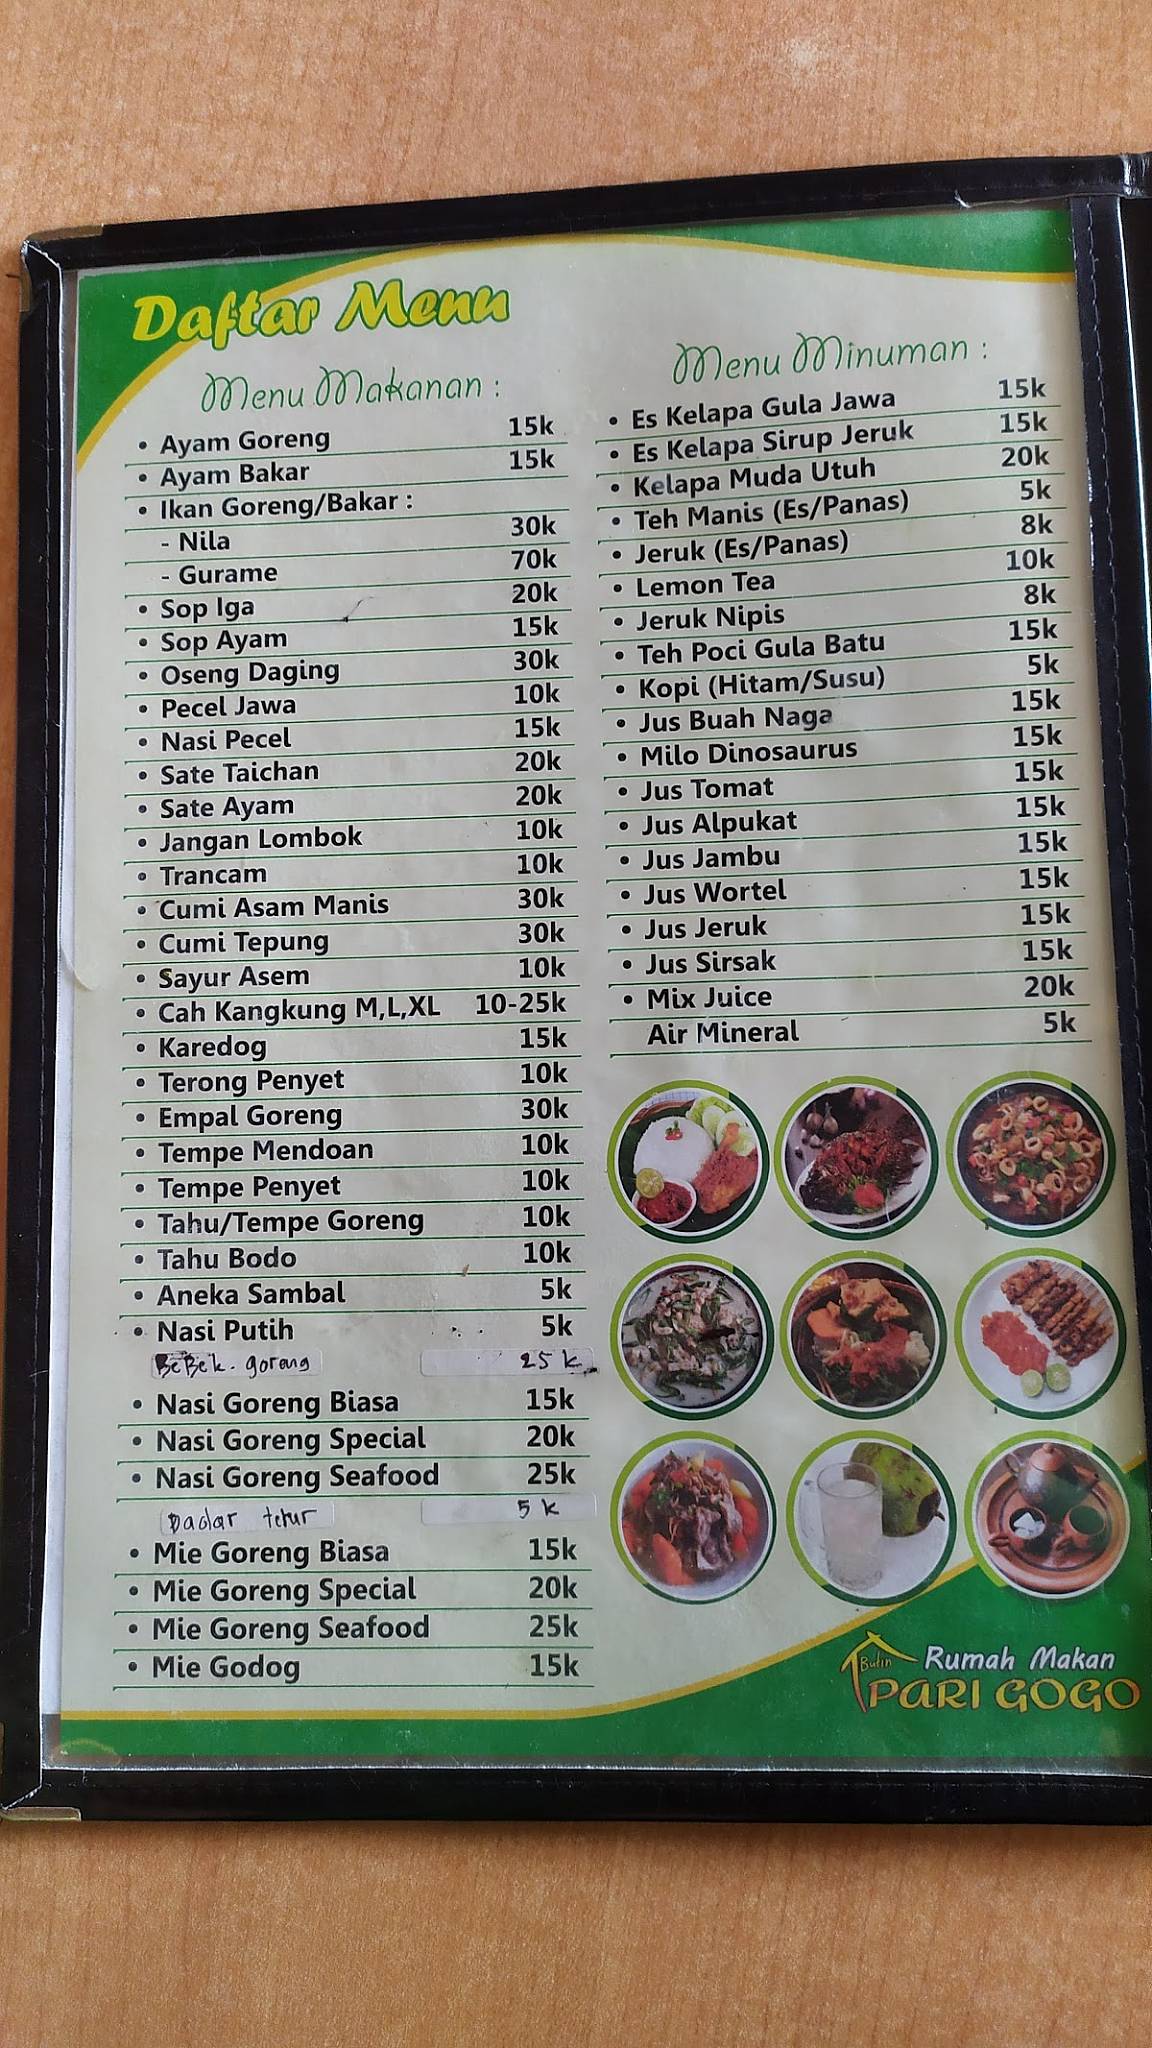 Daftar Menu
Menu Makanan :
• Ayam Goreng 15k
• Ayam Bakar 15k
• Ikan Goreng/Bakar :
- Nila 30k
- Gurame 70k
• Sop Iga 20k
• Sop Ayam 15k
• Oseng Daging 30k
• Pecel Jawa 10k
• Nasi Pecel 15k
• Sate Taichan 20k
• Sate Ayam 20k
• Jangan Lombok 10k
• Trancam 10k
• Cumi Asam Manis 30k
• Cumi Tepung 30k
• Sayur Asem 10k
• Cah Kangkung M,L,XL 10-25k
• Karedog 15k
• Terong Penyet 10k
• Empal Goreng 30k
• Tempe Mendoan 10k
• Tempe Penyet 10k
• Tahu/Tempe Goreng 10k
• Tahu Bodo 10k
• Aneka Sambal 5k
• Nasi Putih 5k
BeBek. goreng 25 k
• Nasi Goreng Biasa 15k
• Nasi Goreng Special 20k
• Nasi Goreng Seafood 25k
Dadar telur 5 k
• Mie Goreng Biasa 15k
• Mie Goreng Special 20k
• Mie Goreng Seafood 25k
• Mie Godog 15k
Menu Minuman :
• Es Kelapa Gula Jawa 15k
• Es Kelapa Sirup Jeruk 15k
• Kelapa Muda Utuh 20k
• Teh Manis (Es/Panas) 5k
• Jeruk (Es/Panas) 8k
• Lemon Tea 10k
• Jeruk Nipis 8k
• Teh Poci Gula Batu 15k
• Kopi (Hitam/Susu) 5k
• Jus Buah Naga 15k
• Milo Dinosaurus 15k
• Jus Tomat 15k
• Jus Alpukat 15k
• Jus Jambu 15k
• Jus Wortel 15k
• Jus Jeruk 15k
• Jus Sirsak 15k
• Mix Juice 20k
Air Mineral 5k
Butin Rumah Makan
PARI GOGO